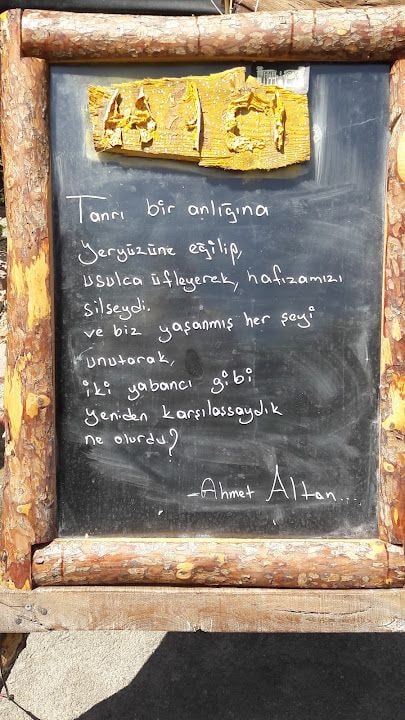 Tanrı bir anlığına
Yeryüzüne eğilip,
usulca üfleyerek, hafızamızı
silseydi.
ve biz yaşanmış her şeyi
unutarak,
iki yabancı gibi
yeniden karşılassaydık
ne olurdu?
-Ahmet Altan...